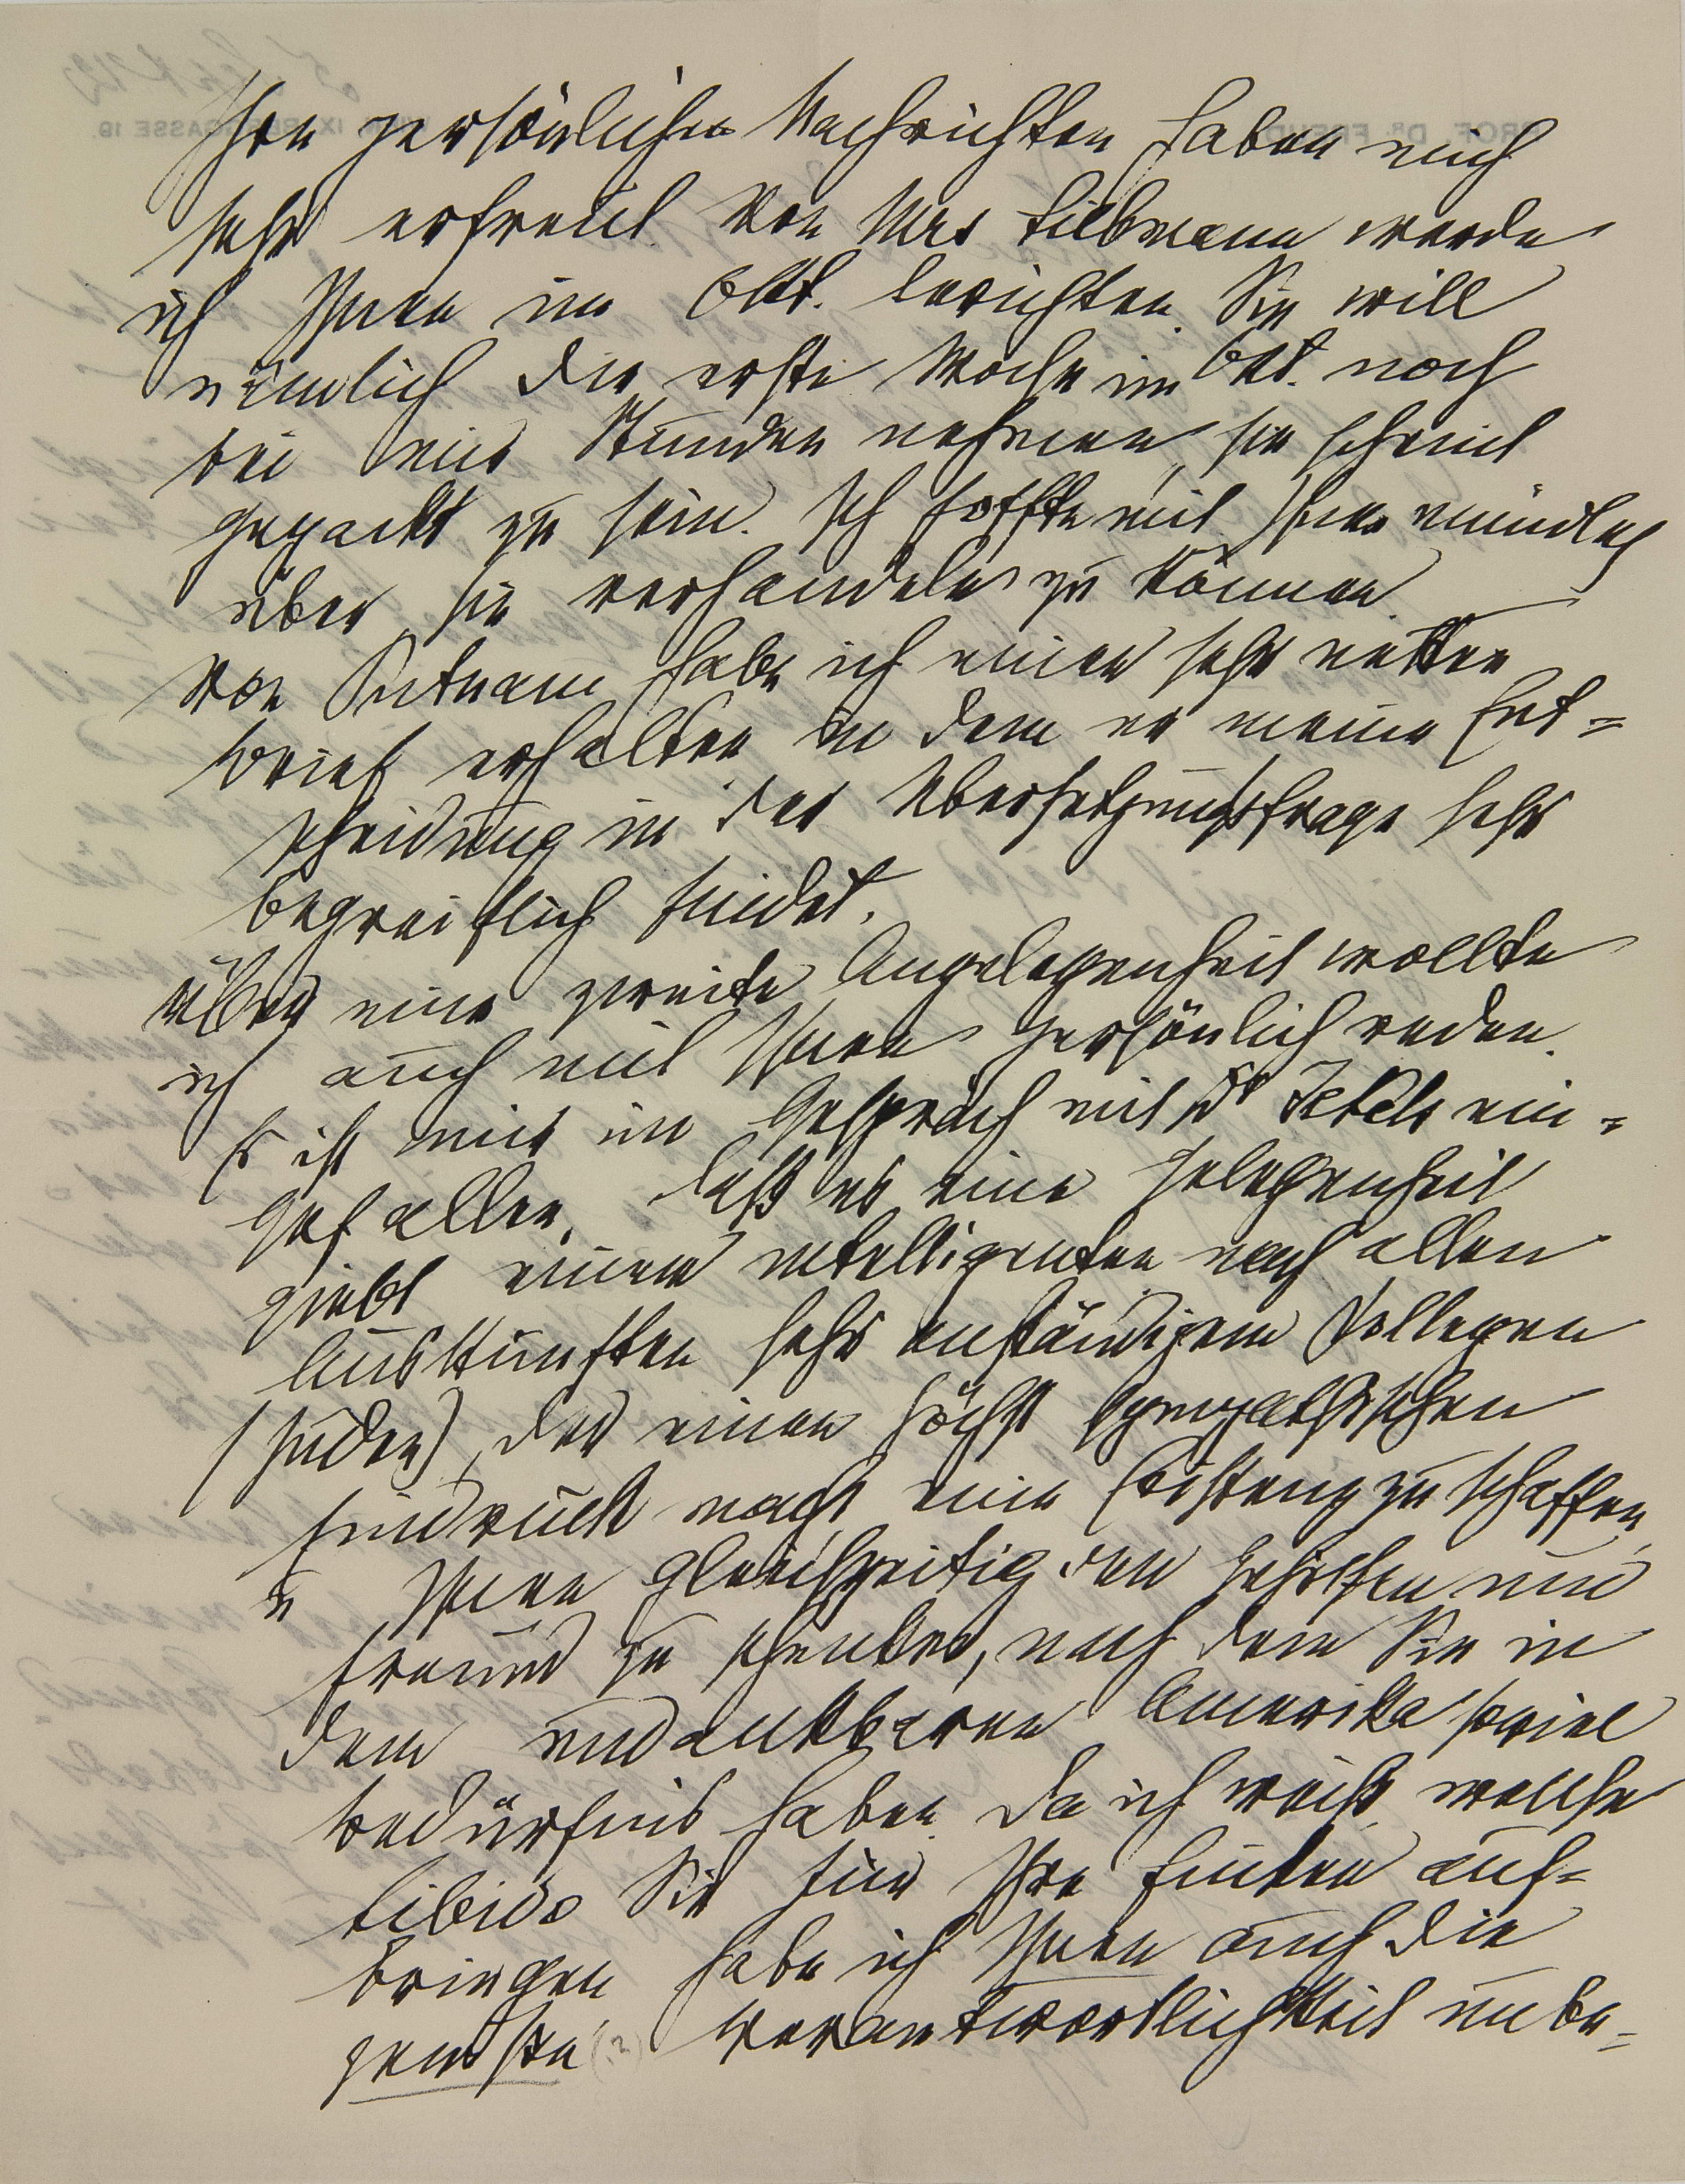 Ihre persönlichen Nachrichten haben mich
sehr erfreut. Von Mrs Liebmann werde
ich Ihnen im Okt. berichten. Sie will
nämlich die erste Woche im Okt. noch
bei mir Stunden nehmen, sie scheint
gepackt zu sein. Ich hoffte mit Ihnen mündlich
über sie verhandeln zu können.
Von Putnam habe ich einen sehr netten
Brief erhalten in dem er meine Ent=
scheidung in der Übersetzungsfrage sehr
begreiflich findet.
Über eine zweite Angelegenheit wollte
ich auch mit Ihnen persönlich reden.
Es ist mir im Gespräch mit Dr Jekels ein=
gefallen, daß es eine Gelegenheit
giebt einem intelligenten nach allen
Auskünften sehr anständigen Kollegen
(Juden), der einen höchst sympathischen
Eindruck macht eine Existenz zu schaffen
u Ihnen gleichzeitig den Gehilfen und
Freund zu schenken, nach dem Sie in
dem undankbaren Amerika soviel
Bedürfnis haben. Da ich weiß, welche
Libido Sie für Ihre Finken auf=
bringen habe ich Ihnen auch die
(?) Verantwortlichkeit